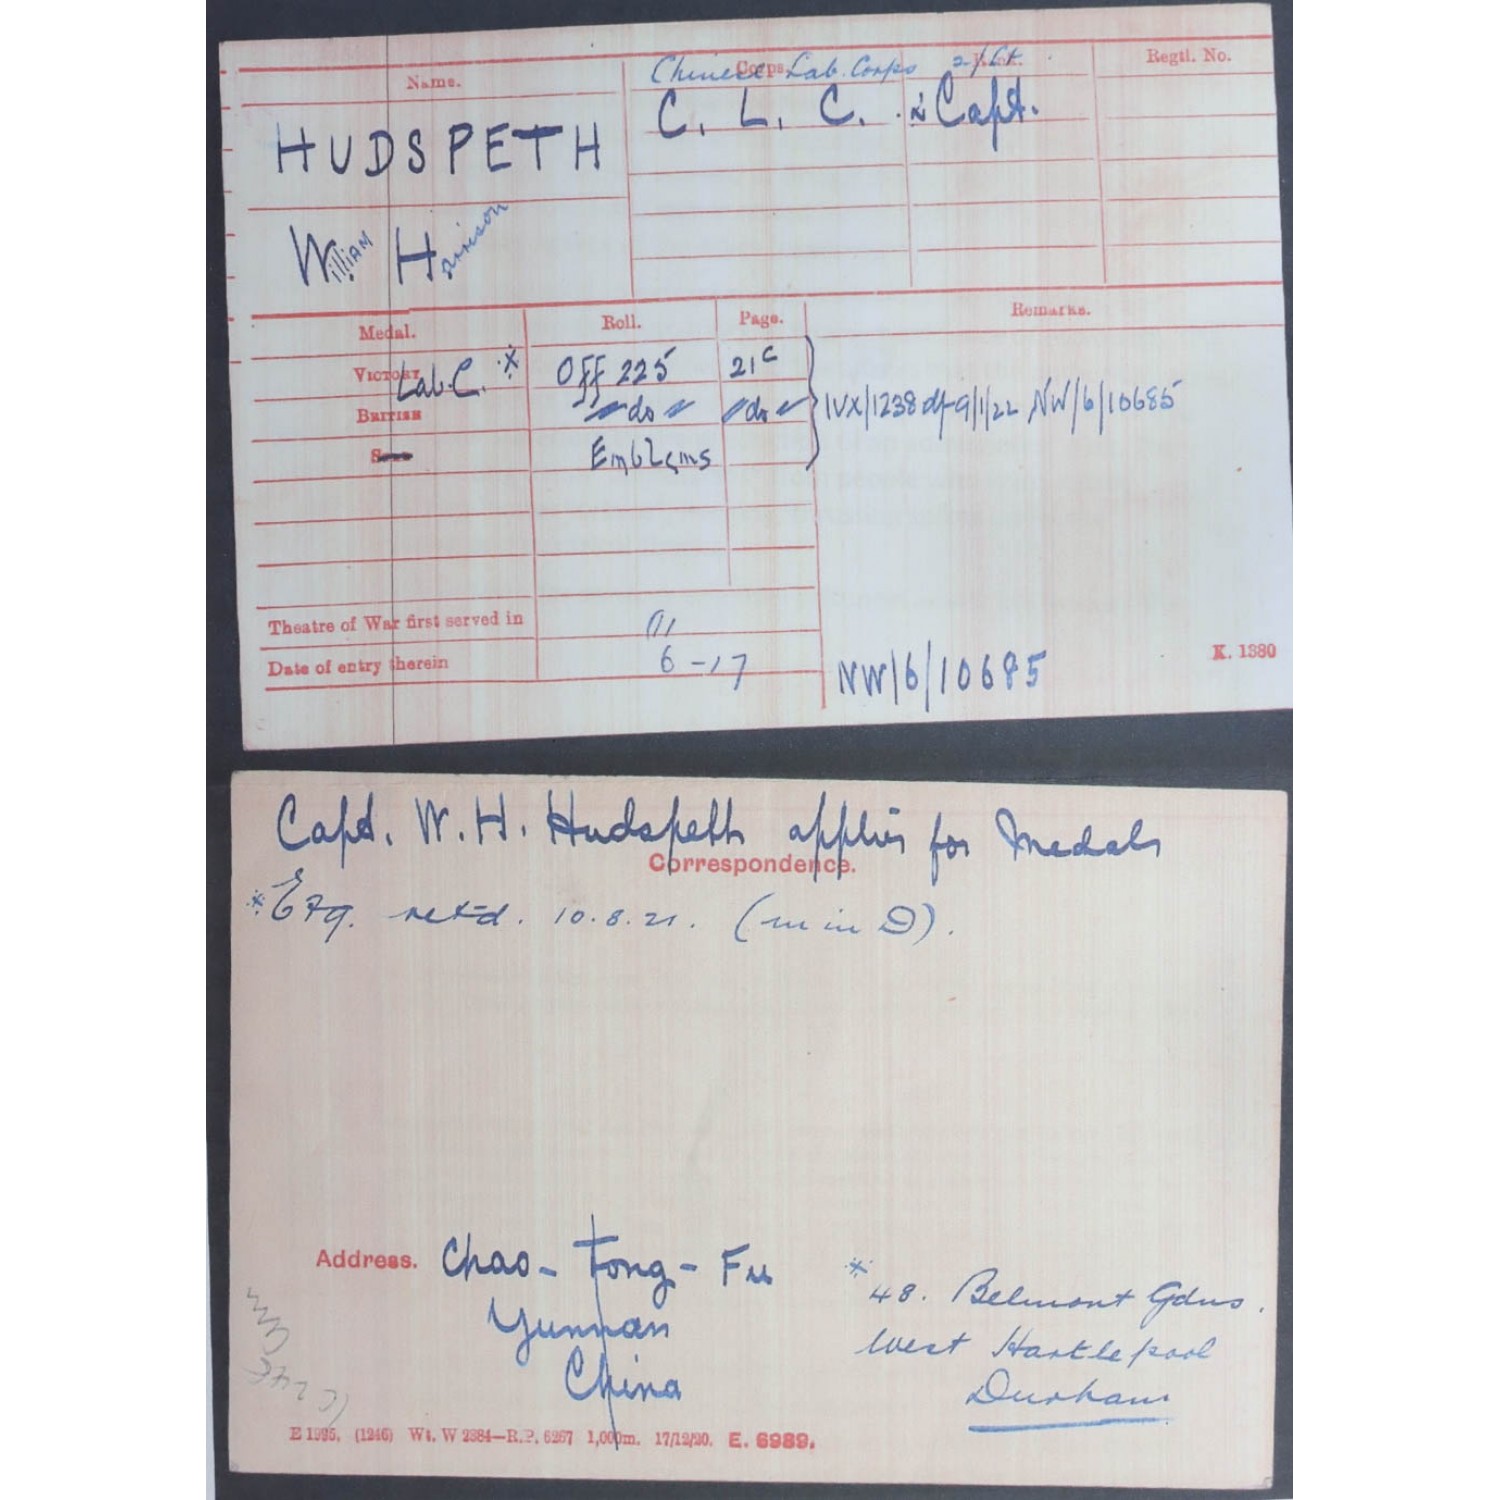 Name. Corps. Rank. Regtl. No.
Chinese Lab. Corps 2/Lt.
HUDSPETH C. L. C. Capt.
William Harrison
Medal. Roll. Page. Remarks.
VICTORY Lab.C. * Off 225 21c
BRITISH do do IVX/1238 d/-9/1/22 NW/6/10685
Emblems
Theatre of War first served in
Date of entry therein 6-17
NW/6/10685
K. 1380
Capt. W. H. Hudspeth applies for Medals
Correspondence.
* EF9. retd. 10.8.21. (m in D).
Address. Chao-Tong-Fu
Yunnan
China
* 48. Belmont Gdns.
West Hartlepool
Durham
E 1995. (1246) Wt. W 2384—R.P. 6267 1,000m. 17/12/20. E. 6989.